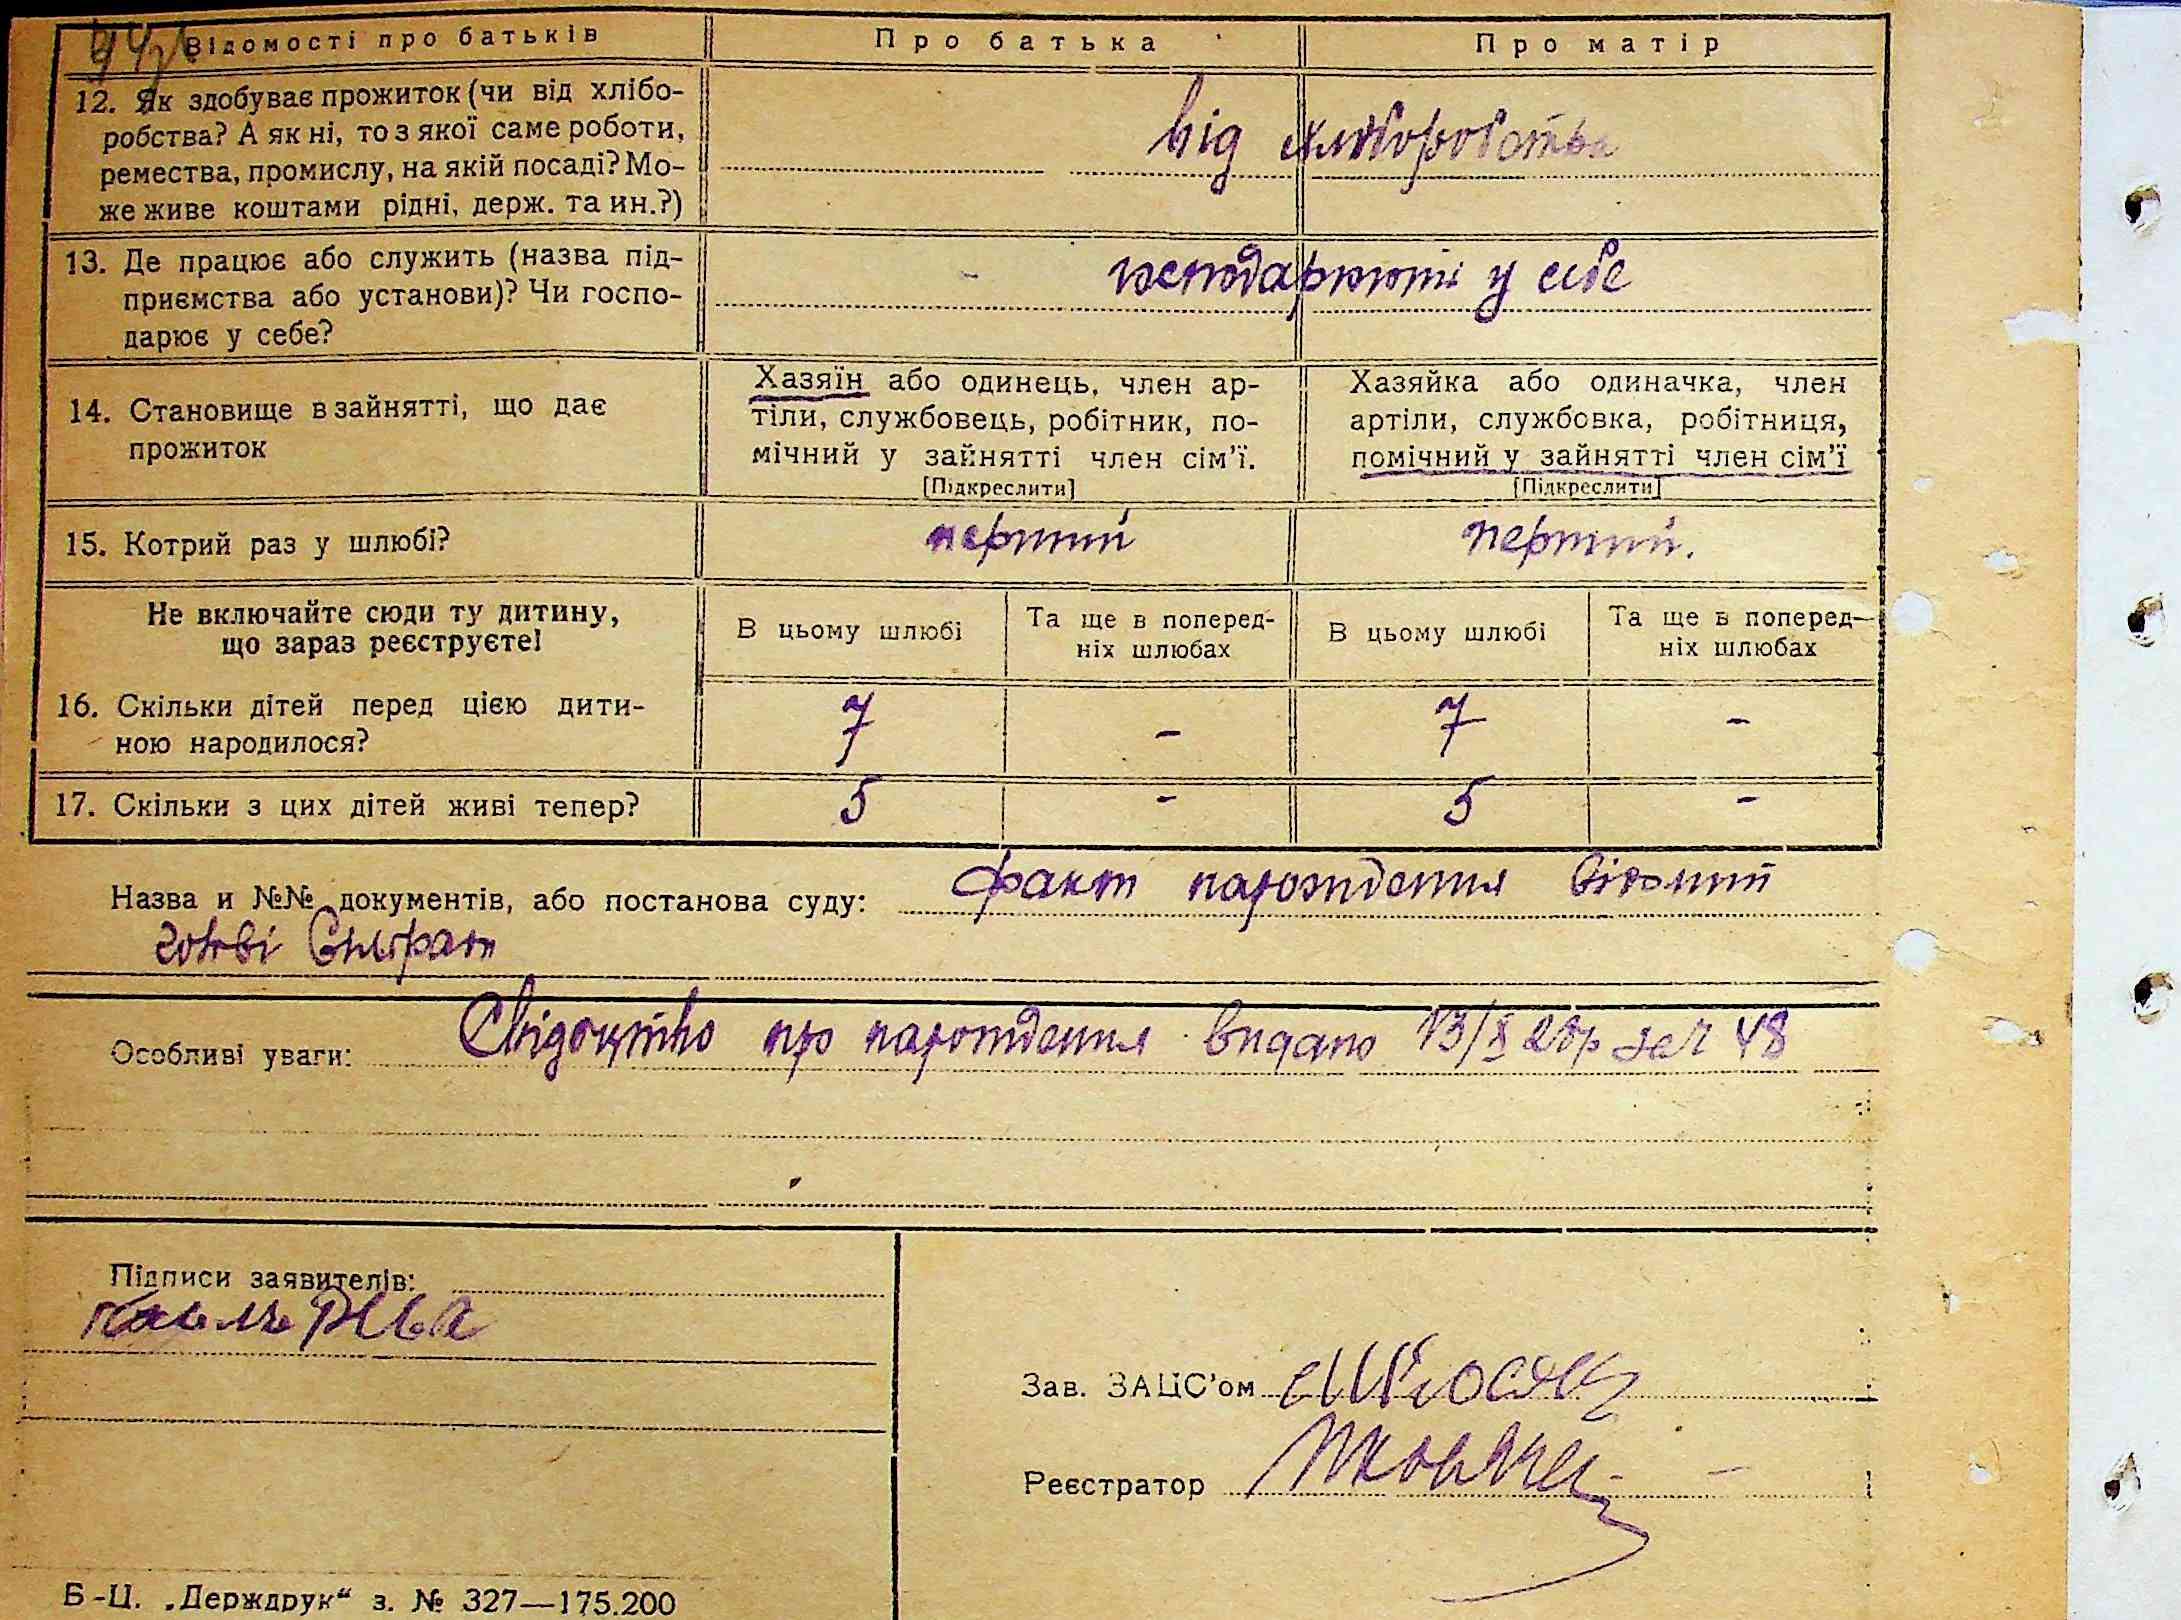 Відомості про батьків
Про батька
Про матір
12. Як здобуває прожиток (чи від хлібо-
робства? А як ні, то з якої саме роботи,
ремества, промислу, на якій посаді? Мо-
же живе коштами рідні, держ. та ин.?)
від хліборобства
13. Де працює або служить (назва під-
приємства або установи)? Чи госпо-
дарює у себе?
господарюють у себе
14. Становище в зайнятті, що дає
прожиток
Хазяїн або одинець, член ар-
тіли, службовець, робітник, по-
мічний у зайнятті член сім'ї.
[Підкреслити]
Хазяйка або одиначка, член
артіли, службовка, робітниця,
помічний у зайнятті член сім'ї
[Підкреслити]
15. Котрий раз у шлюбі?
перший
перший.
Не включайте сюди ту дитину,
що зараз реєструєте!
В цьому шлюбі
Та ще в поперед-
ніх шлюбах
В цьому шлюбі
Та ще в поперед-
ніх шлюбах
16. Скільки дітей перед цією дити-
ною народилося?
7
-
7
-
17. Скільки з цих дітей живі тепер?
5
-
5
-
Назва и №№ документів, або постанова суду: факт народження відомий
Особливі уваги: Свідоцтво про народження видано 13/X 28р за № 48
Підписи заявителів:
Зав. ЗАЦС'ом
Реєстратор
Б-Ц. „Держдрук“ з. № 327—175.200